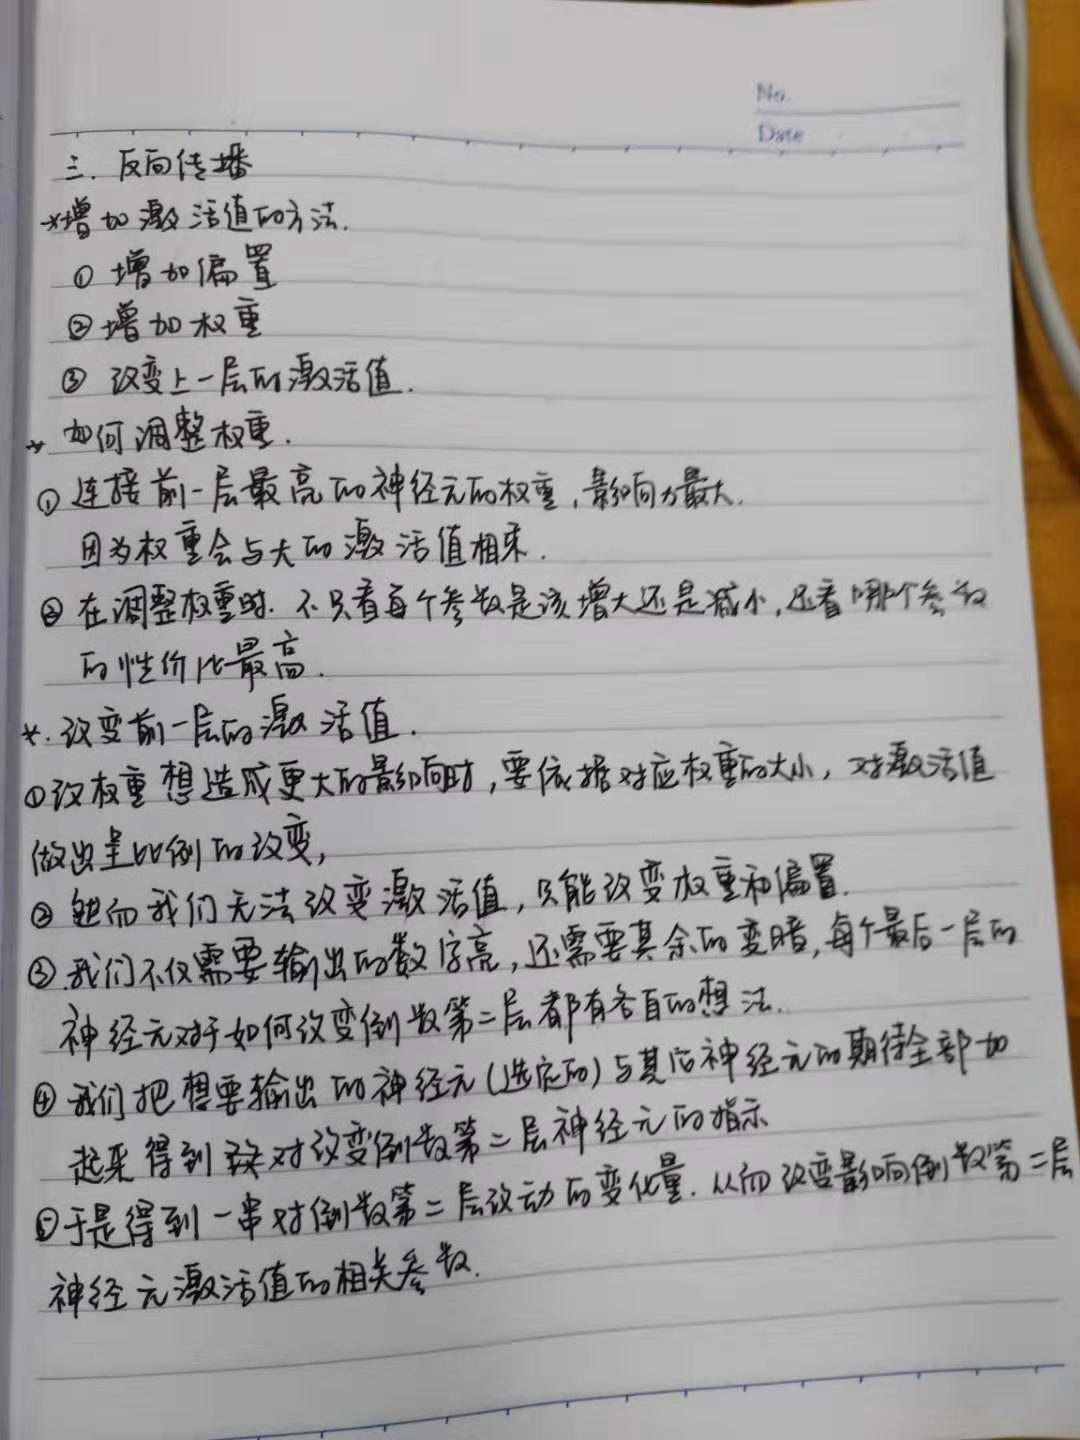 No.
Date
三. 反向传播
*增加激活值的方法.
① 增加偏置
② 增加权重
③ 改变上一层的激活值.
* 如何调整权重.
① 连接前一层最高的神经元的权重,影响力最大.
因为权重会与大的激活值相乘.
② 在调整权重时. 不只看每个参数是该增大还是减小,还看哪个参数
的性价比最高.
*. 改变前一层的激活值.
①改权重想造成更大的影响时,要依据对应权重的大小,对激活值
做出呈比例的改变,
② 然而我们无法改变激活值,只能改变权重和偏置.
③ 我们不仅需要输出的数字高,还需要其余的变暗,每个最后一层的
神经元对于如何改变倒数第二层都有各自的想法.
④ 我们把想要输出的神经元(选定的)与其后神经元的期待全部加
起来得到对改变倒数第二层神经元的指示
⑤于是得到一串对倒数第二层改动的变化量.从而改变影响倒数第二层
神经元激活值的相关参数.